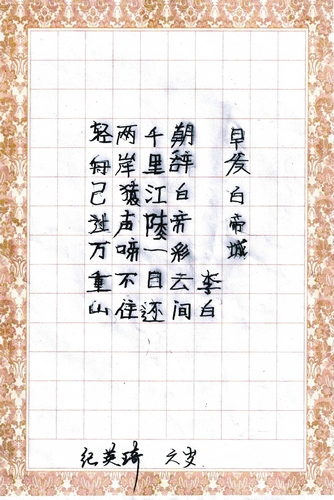 早发白帝城
李白
朝辞白帝彩云间
千里江陵一日还
两岸猿声啼不住
轻舟已过万重山
纪英琦 六岁